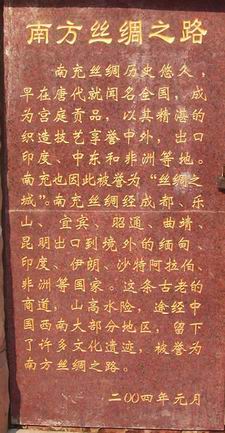 南方丝绸之路
南充丝绸历史悠久，
早在唐代就闻名全国，成
为宫庭贡品，以其精湛的
织造技艺享誉中外，出口
印度、中东和非洲等地。
南充也因此被誉为“丝绸之
城”。南充丝绸经成都、乐
山、宜宾、昭通、曲靖、
昆明出口到境外的缅甸、
印度、伊朗、沙特阿拉伯、
非洲等国家。这条古老的
商道，山高水险，途经中
国西南大部分地区，留下
了许多文化遗迹，被誉为
南方丝绸之路。
二00四年元月